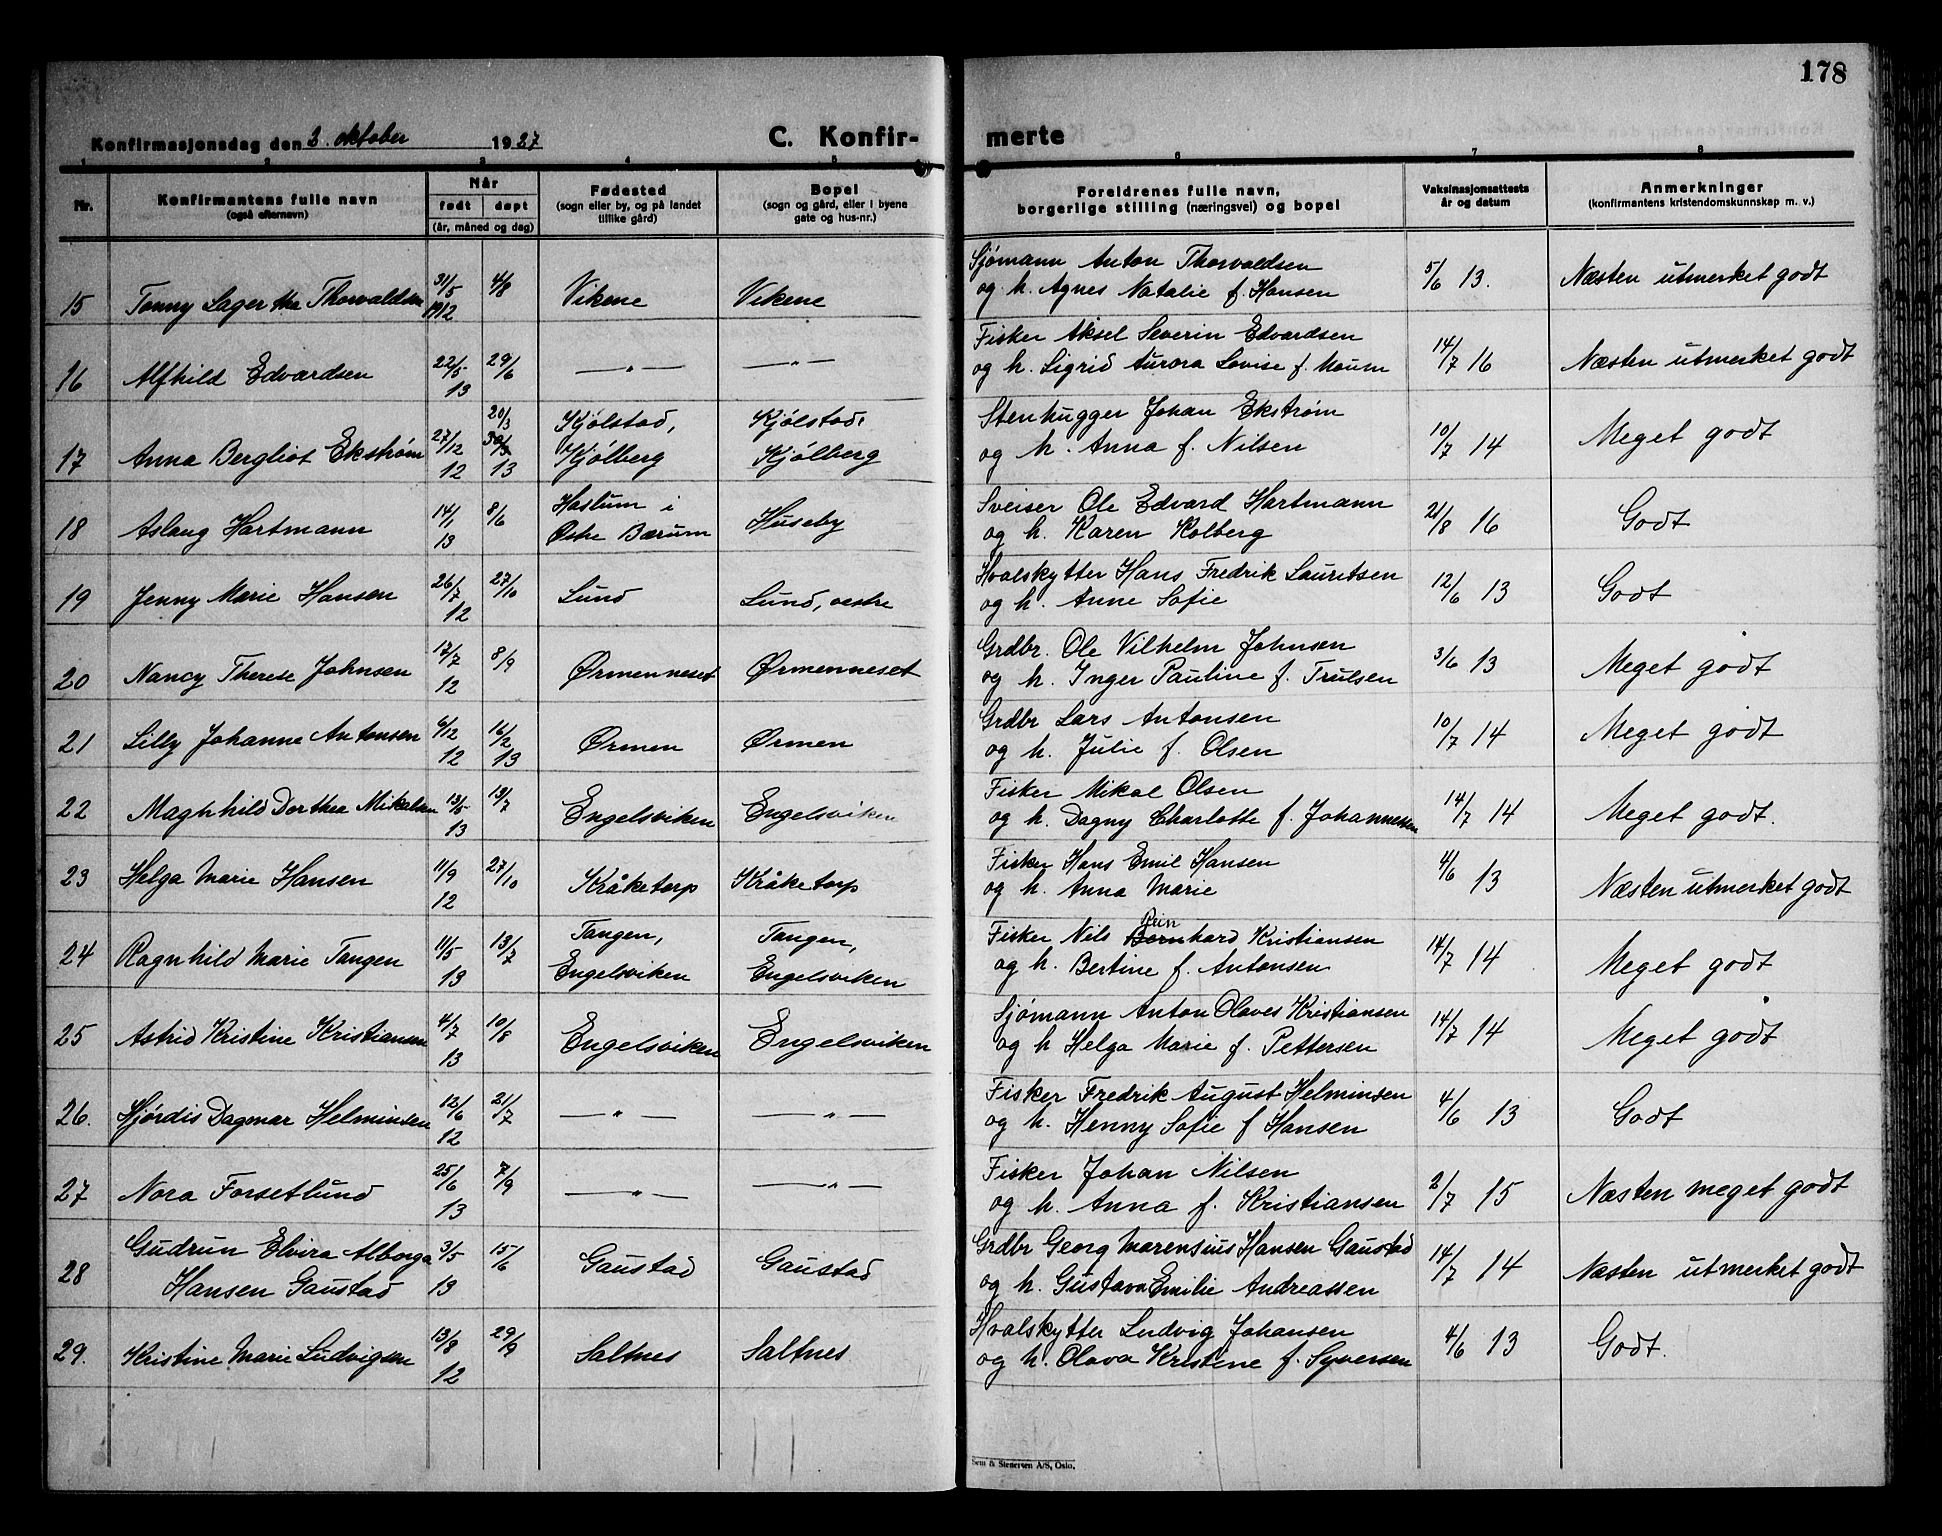 178
Konfirmasjonsdag den 2. oktober 1927
C. Konfir- merte
1 2 3 4 5 6 7 8
Nr.
Konfirmantens fulle navn
(også efternavn)
Når
født døpt
(år, måned og dag)
Fødested
(sogn eller by, og på landet
tillike gård)
Bopel
(sogn og gård, eller i byene
gate og hus-nr.)
Foreldrenes fulle navn,
borgerlige stilling (næringsvei) og bopel
Vaksinasjonsattests
år og datum
Anmerkninger
(konfirmantens kristendomskunnskap m. v.)
15 Tonny Lagertha Thorvaldsen 31/5 1912 4/8 Vikene Vikene Sjømann Anton Thorvaldsen
og h. Agnes Natalie f. Hansen 5/6 13. Næsten utmerket godt
16 Alfhild Edvardsen 22/5 13 29/6 — " — — " — Fisker Aksel Severin Edvardsen
og h. Sigrid Aurora Lovise f. Moum 14/7 16 Næsten utmerket godt
17 Anna Bergliot Ekstrøm 27/12 12 20/3 30/3 13 Kjølstad, Kjølberg Kjølstad, Kjølberg Stenhugger Johan Ekstrøm
og h. Anna f. Nilsen 10/7 14 Meget godt
18 Aslaug Hartmann 14/1 13 8/6 Haslum i Østre Bærum Huseby Sveiser Ole Edvard Hartmann
og h. Karen Kolberg 21/8 16 Godt
19 Jenny Marie Hansen 26/7 12 27/10 Lund Lund, vestre Hvalskytter Hans Fredrik Lauritsen
og h. Anne Sofie 12/6 13 Godt
20 Nancy Therese Johnsen 17/7 12 8/9 Ørmenneset Ørmenneset Grdbr. Ole Vilhelm Johnsen
og h. Inger Pauline f. Trulsen 3/6 13 Meget godt
21 Lilly Johanne Antonsen 6/12 12 16/2 13 Ørmen Ørmen Grdbr Lars Antonsen
og h. Julie f. Olsen 10/7 14 Meget godt
22 Maghhild Dorthea Mikalsen 13/5 13 13/7 Engelsviken Engelsviken Fisker Mikal Olsen
og h. Dagny Charlotte f. Johannessen 14/7 14 Meget godt.
23 Helga Marie Hansen 11/9 12 27/10 Kråketorp Kråketorp Fisker Hans Emil Hansen
og h. Anna Marie 4/6 13 Næsten utmerket godt
24 Ragnhild Marie Tangen 11/5 13 13/7 Tangen, Engelsviken Tangen, Engelsviken Fisker Nils Bernhard Rein Kristiansen
og h. Bertine f. Antonsen 14/7 14 Meget godt
25 Astrid Kristine Kristiansen 4/7 13 10/8 Engelsviken Engelsviken Sjømann Anton Olaves Kristiansen
og h Helga Marie f. Pettersen 14/7 14 Meget godt
26. Hjørdis Dagmar Helminsen 12/6 12 21/7 — " — — " — Fisker Fredrik August Helminsen
og h. Henny Sofie f Hansen 4/6 13 Godt
27 Nora Forsetlund 25/6 13 7/9 — " — — " — Fisker Johan Nilsen
og h. Anna f. Kristiansen 2/7 15 Næsten meget godt
28 Gudrun Elvira Alborga Hansen Gaustad 3/5 13 15/6 Gaustad Gaustad Grdbr Georg Marensius Hansen Gaustad
og h. Gustava Emilie Andreassen 14/7 14 Næsten utmerket godt
29. Kristine Marie Ludvigsen 13/8 12 29/9 Saltnes Saltnes Hvalskytter Ludvig Johansen
og h. Olava Kristine f. Syversen 4/6 13 Godt.
Sem & Stenersen A/S, Oslo.